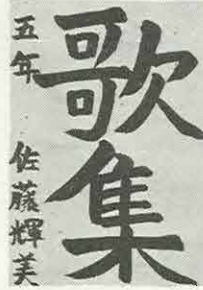 歌集
五年 佐藤輝美